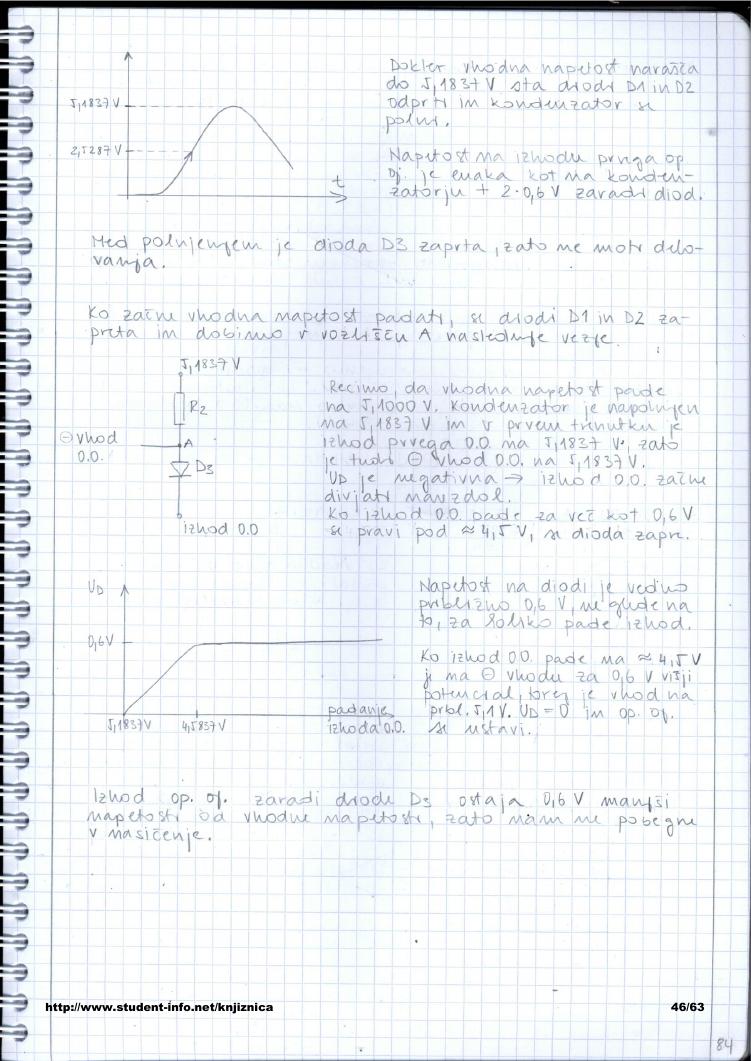 5,1837 V
2,5287 V
t
Dokler vhodna napetost narašča
do 5,1837 V sta diodi D1 in D2
odprti in kondenzator se
polni.
Napetost na izhodu prvega op
oj. je enaka kot na konden-
zatorju + 2·0,6 V zaradi diod.
Med polnjenjem je dioda D3 zaprta, zato ne moti delo-
vanja.
Ko začne vhodna napetost padati, se diodi D1 in D2 za-
preta in dobimo v vozlišču A naslednje vezje.
5,1837 V
R2
⊖ vhod
O.O.
A
D3
izhod O.O
Recimo, da vhodna napetost pade
na 5,1000 V. Kondenzator je napolnjen
na 5,1837 V in v prvem trenutku je
izhod prvega O.O. na 5,1837 V, zato
je tudi ⊖ vhod O.O. na 5,1837 V.
UD je negativna → izhod O.O. začne
divjati navzdol.
Ko izhod O.O. pade za več kot 0,6 V
se pravi pod ≈ 4,5 V, se dioda zapre.
UD
0,6V
5,1837V
4,5837V
padanje
izhoda O.O.
Napetost na diodi je vedno
približno 0,6 V, ne glede na
to, za koliko pade izhod.
Ko izhod O.O. pade na ≈ 4,5 V
ji na ⊖ vhodu za 0,6 V višji
potencial, torej je vhod na
pribl. 5,1 V. UD = 0 in op. oj.
se ustavi.
Izhod op. oj. zaradi diode D3 ostaja 0,6 V manjši
napetosti od vhodne napetosti, zato nam ne pobegne
v nasičenje.
http://www.student-info.net/knjiznica
46/63
84